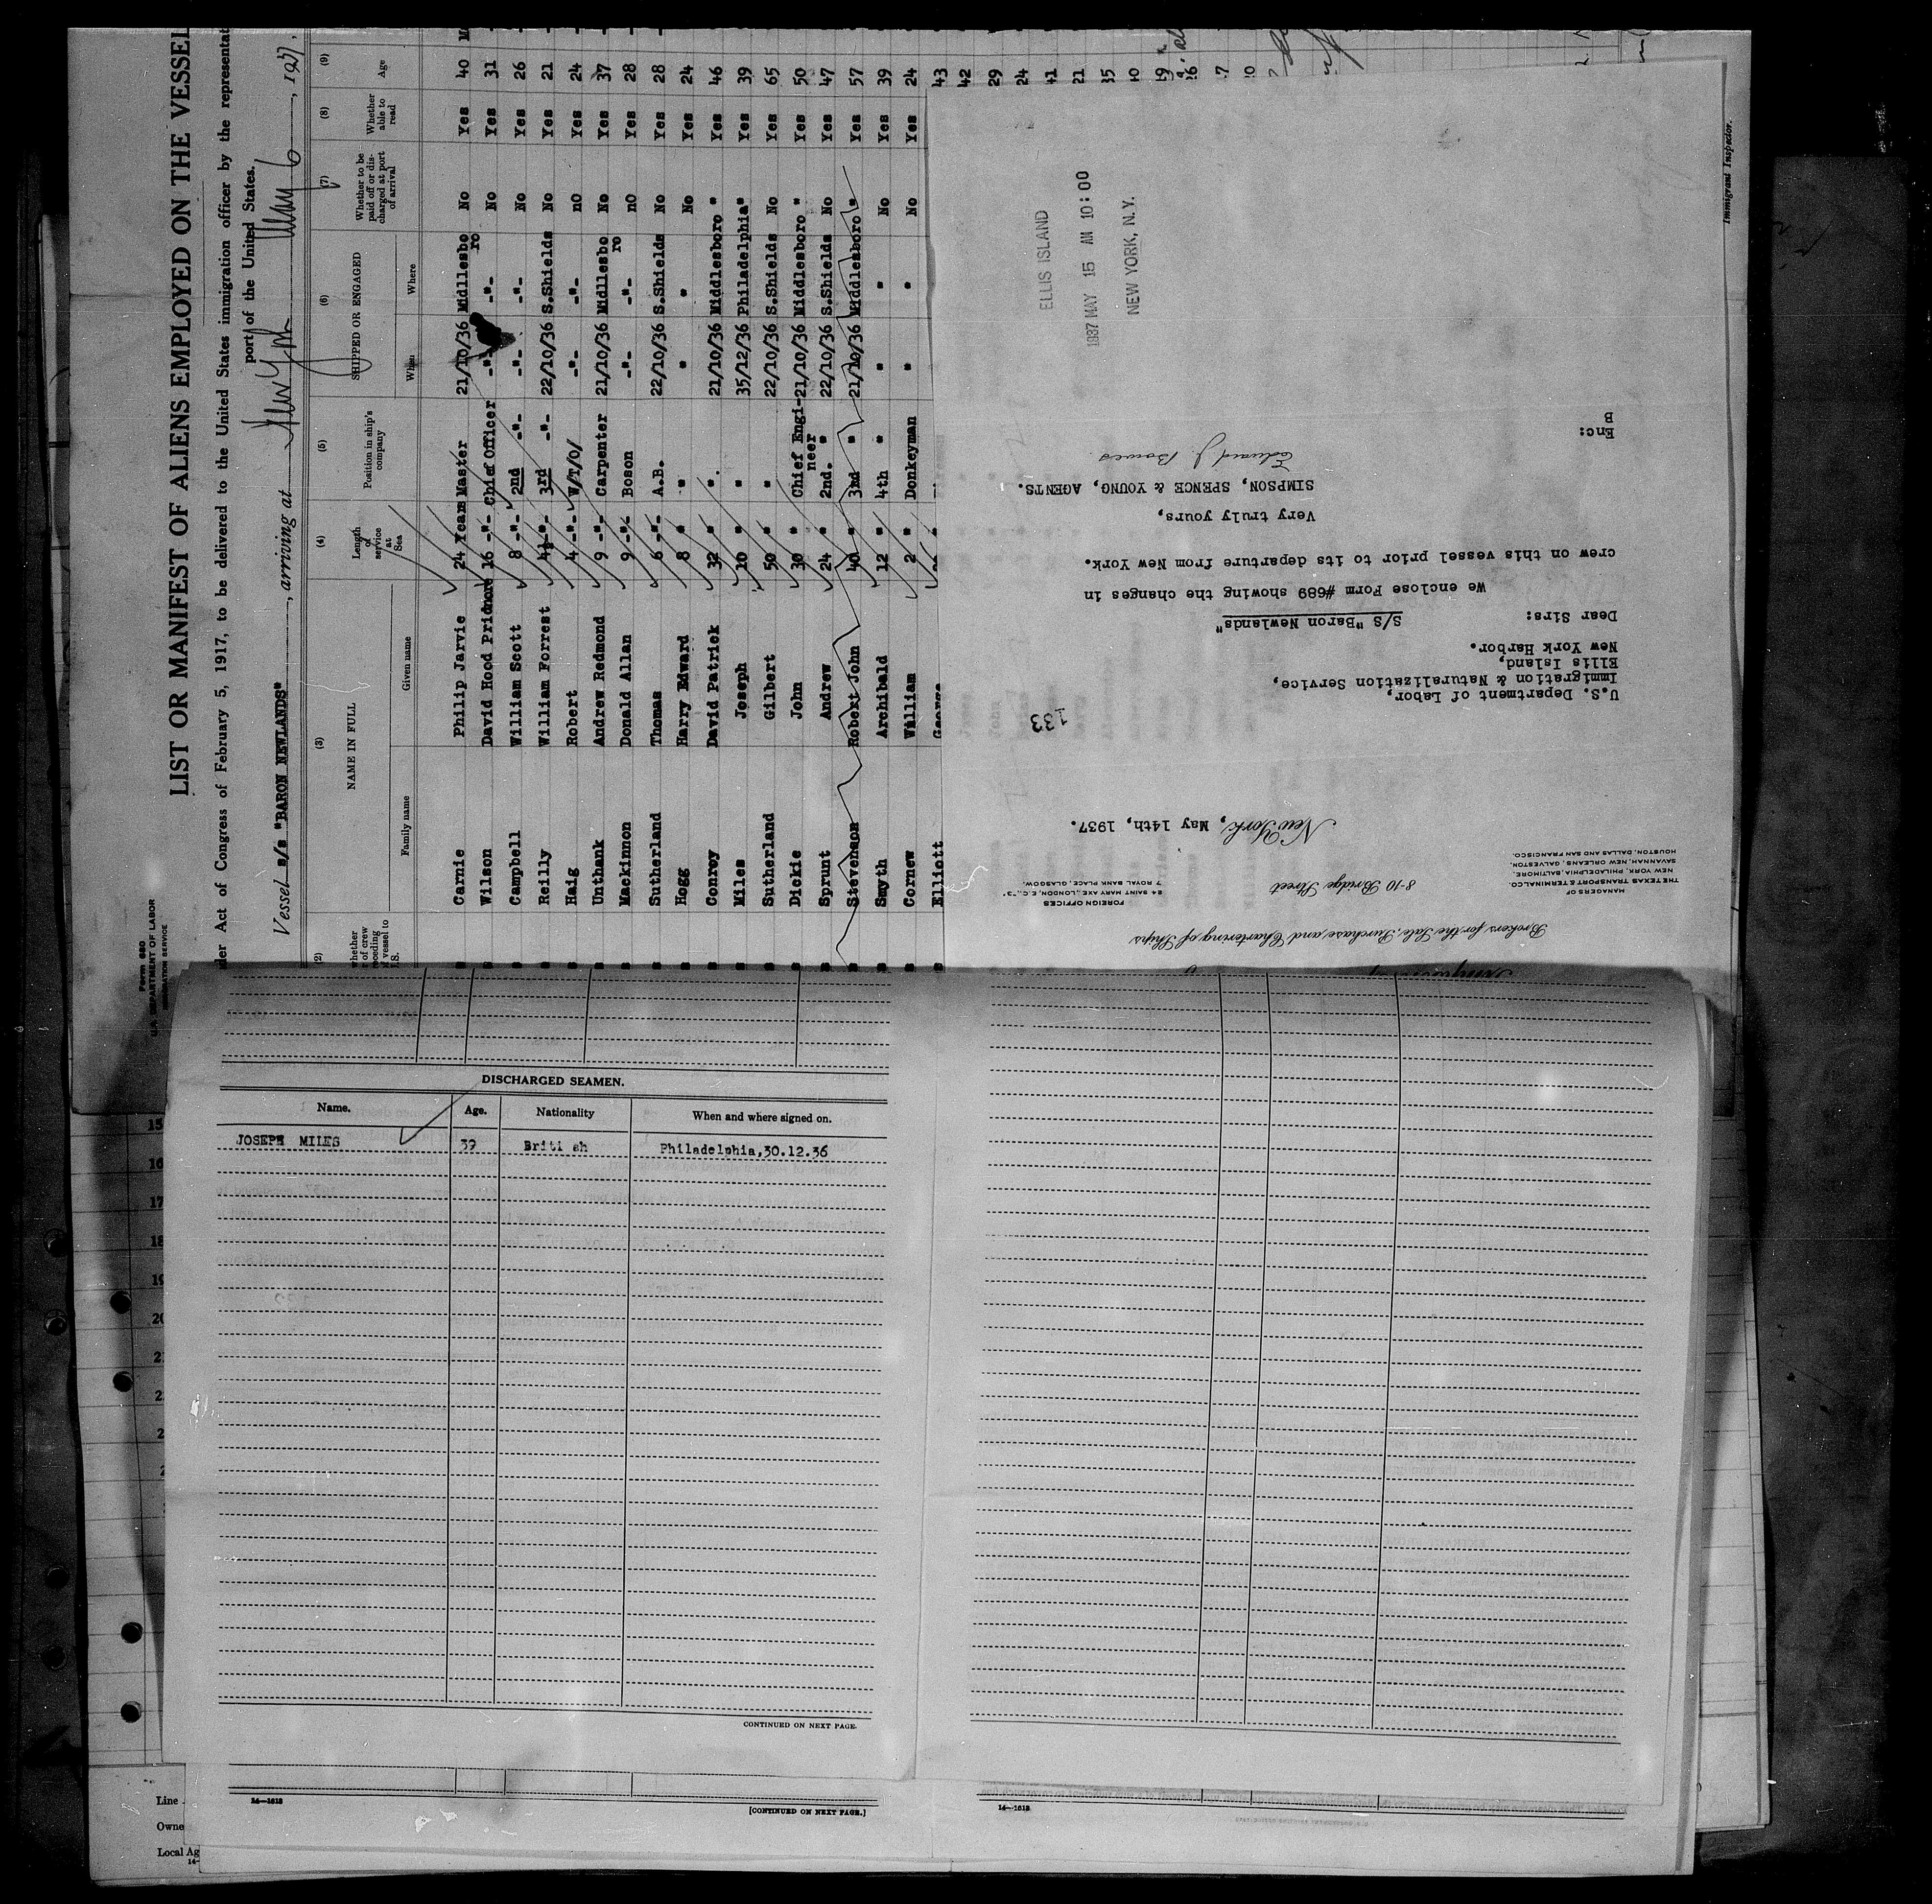 Form 680
U.S. DEPARTMENT OF LABOR
IMMIGRATION SERVICE
LIST OR MANIFEST OF ALIENS EMPLOYED ON THE VESSEL
Act of Congress of February 5, 1917, to be delivered to the United States immigration officer by the representat
port of the United States.
Vessel s/s "BARON NEWLANDS", arriving at New York May 6, 1937.
(2) (3) (4) (5) (6) (7) (8) (9)
NAME IN FULL Length of service at Sea Position in ship's company SHIPPED OR ENGAGED Whether to be paid off or discharged at port of arrival Whether able to read Age
Family name Given name When Where
Carnie Philip Jarvie 24 Years Master 21/10/36 Midllesbo ro No Yes 40
Wilson David Hood Pridmore 16 -"- Chief Officer -"- -"- No Yes 31
Campbell William Scott 8 -"- 2nd -"- -"- -"- No Yes 26
Reilly William Forrest 4½ -"- 3rd -"- 22/10/36 S.Shields No Yes 21
Haig Robert 4 -"- W/T/O/ -"- -"- nO Yes 24
Unthank Andrew Redmond 9 -"- Carpenter 21/10/36 Midllesbo ro No Yes 37
Mackinnon Donald Allan 9 -"- Boson -"- -"- nO Yes 28
Sutherland Thomas 6 -"- A.B. 22/10/36 S.Shields No Yes 28
Hogg Harry Edward 8 " " " " No Yes 24
Conroy David Patrick 32 " ". 21/10/36 Middlesboro " Yes 46
Miles Joseph 10 " " 35/12/36 Philadelphia" Yes 39
Sutherland Gilbert 50 " " 22/10/36 S.Shields No Yes 65
Dickie John 30 " Chief Engi-neer 21/10/36 Middlesboro " Yes 50
Sprunt Andrew 24 " 2nd. " 22/10/36 S.Shields No Yes 47
Stevenson Robert John 40 " 3rd " 21/10/36 Middlesboro " Yes 57
Smyth Archibald 12 " 4th " " " No Yes 39
Cornew William 2 " Donkeyman " " No Yes 24
Elliott George 43
42
29
24
41
21
Immigrant Inspector.
Brokers for the Sale, Purchase and Chartering of Ships
MANAGERS OF
THE TEXAS TRANSPORT & TERMINAL CO.
NEW YORK, PHILADELPHIA, BALTIMORE,
SAVANNAH, NEW ORLEANS, GALVESTON,
HOUSTON, DALLAS AND SAN FRANCISCO.
8-10 Bridge Street
FOREIGN OFFICES
24 SAINT MARY AXE, LONDON, E.C., "3".
7 ROYAL BANK PLACE, GLASGOW.
New York, May 14th, 1937.
133
U.S. Department of Labor,
Immigration & Naturalization Service,
Ellis Island,
New York Harbor.
Dear Sirs:
S/S "Baron Newlands"
We enclose Form #689 showing the changes in
crew on this vessel prior to its departure from New York.
Very truly yours,
SIMPSON, SPENCE & YOUNG, AGENTS.
Edward J. Bowes
Enc:
B
ELLIS ISLAND
1937 MAY 15 AM 10:00
NEW YORK, N.Y.
DISCHARGED SEAMEN.
Name. Age. Nationality When and where signed on.
JOSEPH MILES 39 Briti sh Philadelphia,30.12.36
CONTINUED ON NEXT PAGE.
15
16
17
18
19
20
Line
Owne
Local Ag
14—1618
[CONTINUED ON NEXT PAGE.]
14—1618